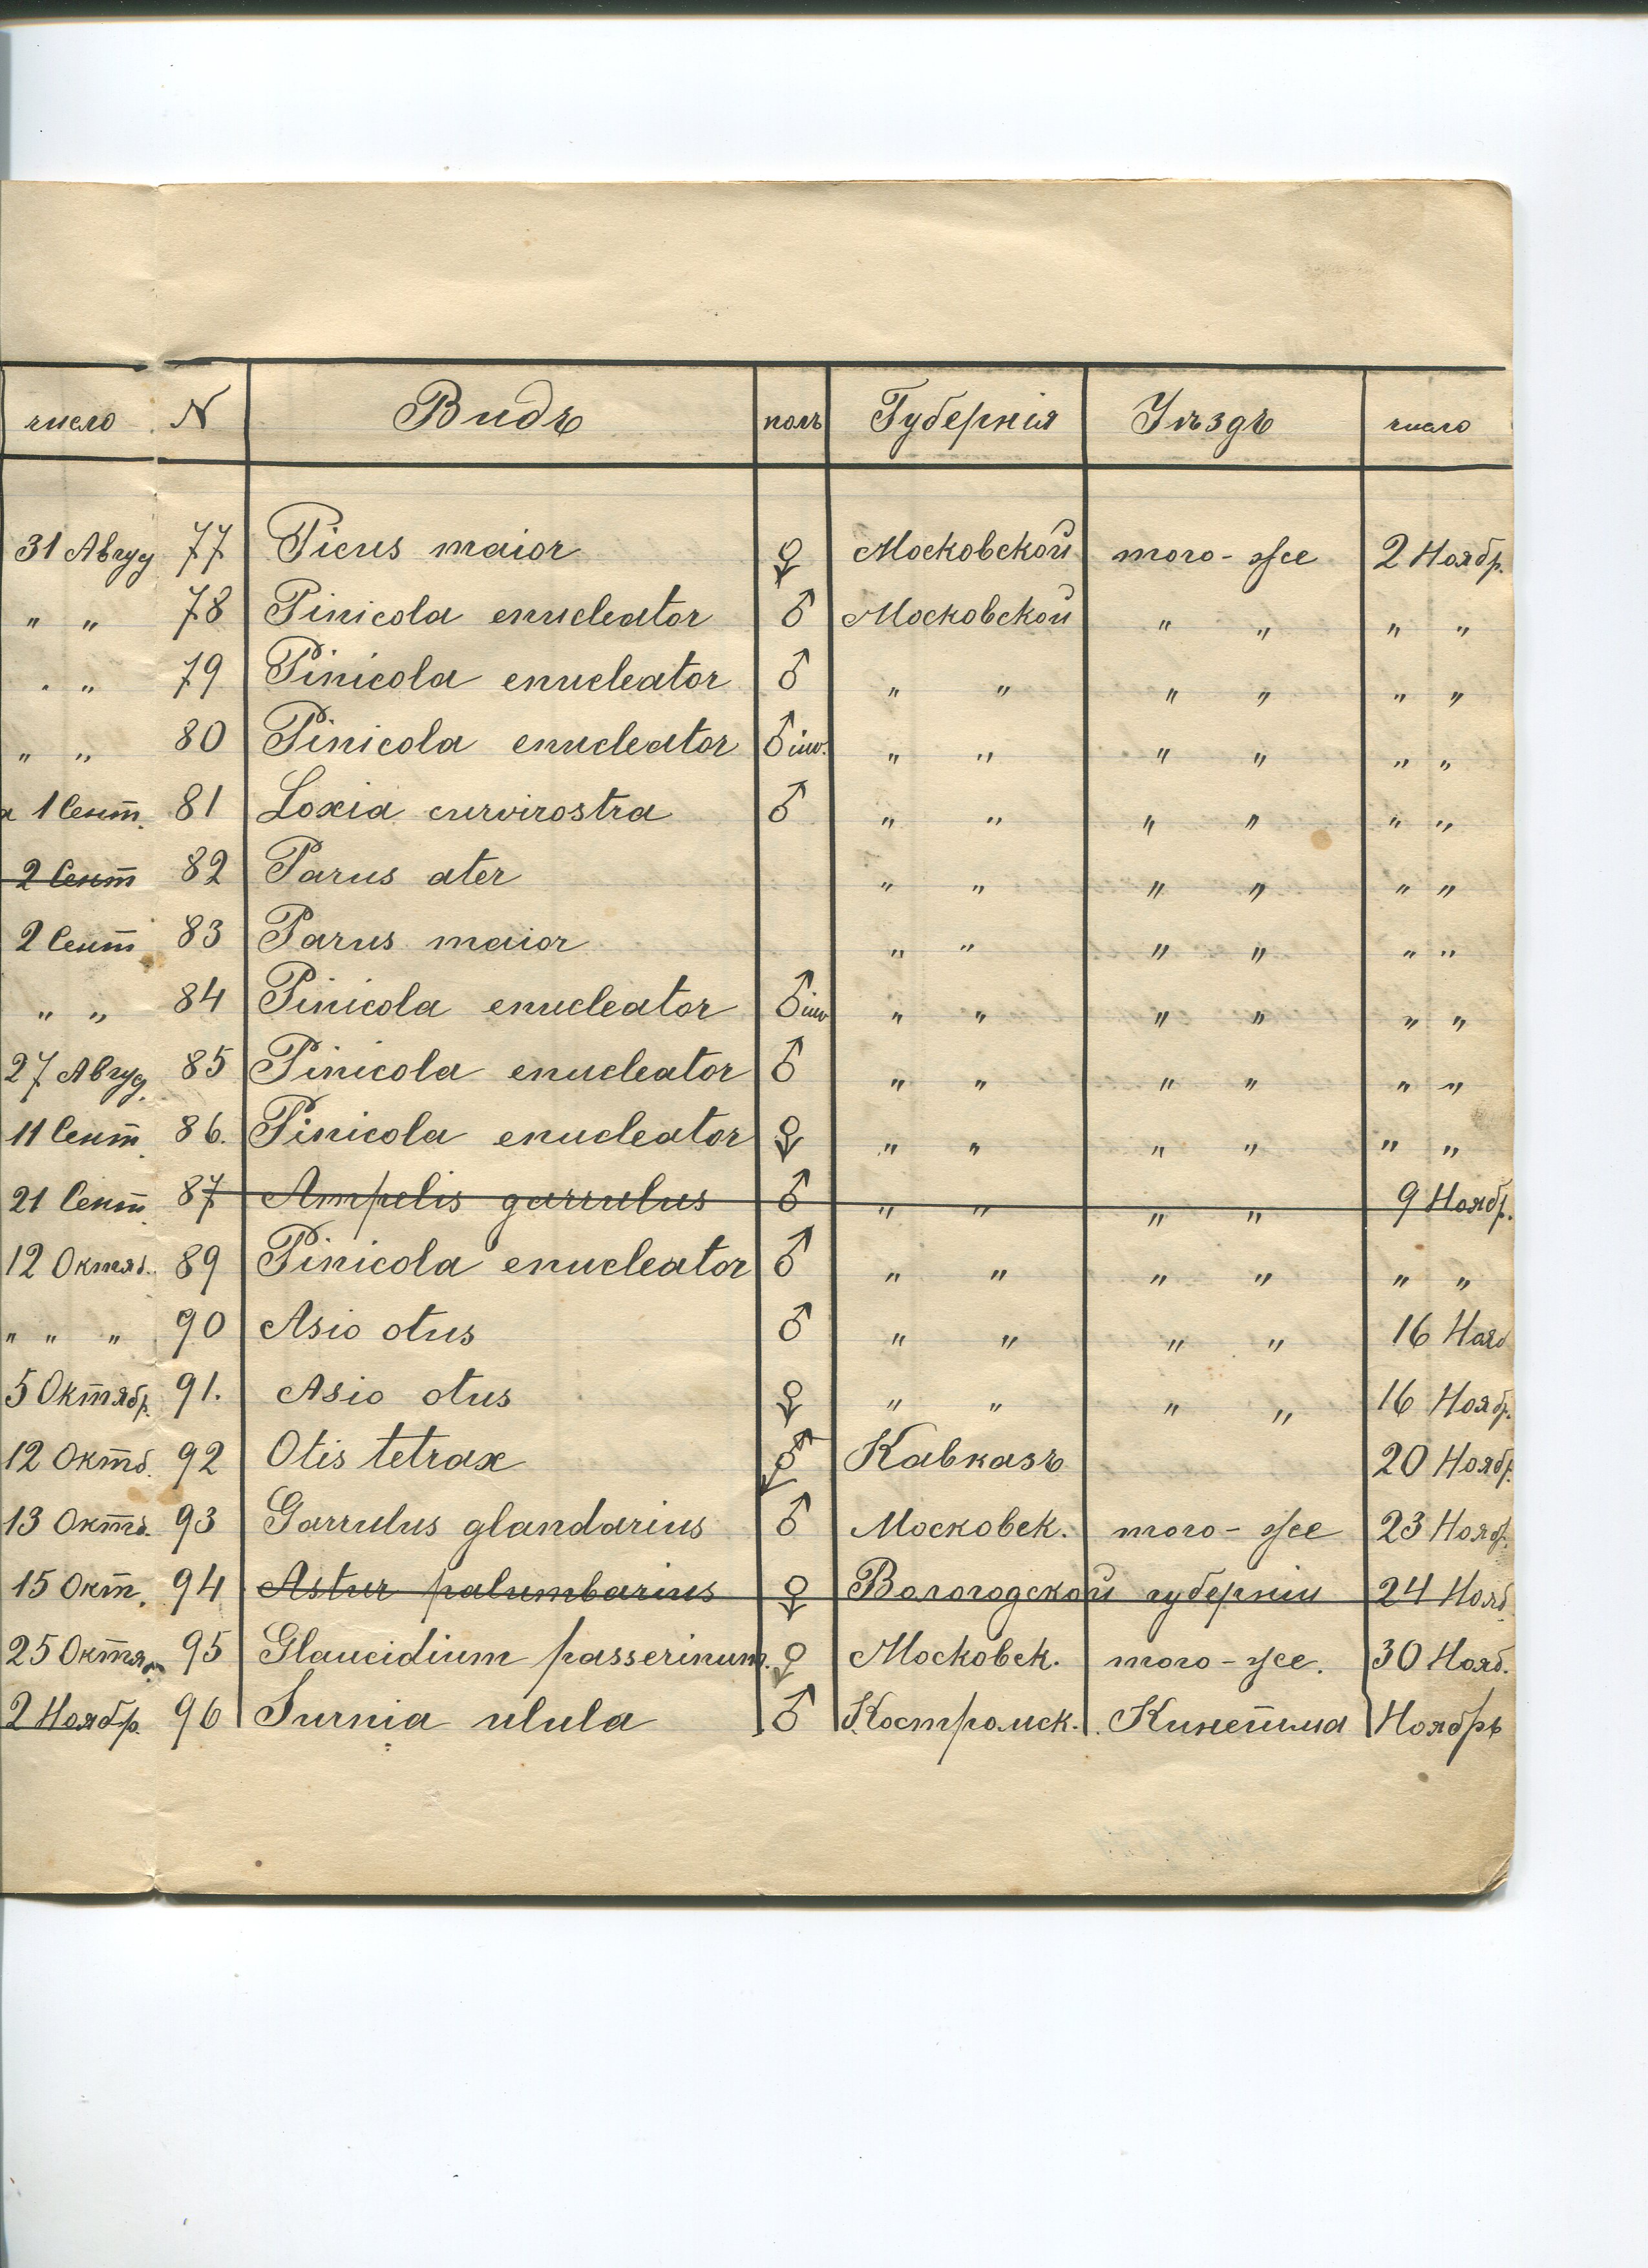 число N Видъ полъ Губернія Уѣздъ число
31 Авгус 77 Picus maior ♀ Московской того-же 2 Ноябр.
" " 78 Pinicola enucleator ♂ Московской " " " "
" " 79 Pinicola enucleator ♂ " " " " " "
" " 80 Pinicola enucleator ♂ iuv. " " " " " "
1 Сент. 81 Loxia curvirostra ♂ " " " " " "
2 Сент 82 Parus ater " " " " " "
2 Сент 83 Parus maior " " " " " "
" " 84 Pinicola enucleator ♂ iuv " " " " " "
27 Авгус. 85 Pinicola enucleator ♂ " " " " " "
11 Сент. 86. Pinicola enucleator ♀ " " " " " "
21 Сент. 87 Ampelis garrulus ♂ " " " " 9 Ноябр.
12 Октяб. 89 Pinicola enucleator ♂ " " " " " "
" " " 90 Asio otus ♂ " " " " 16 Нояб
5 Октябр. 91. Asio otus ♀ " " " " 16 Ноябр.
12 Октб. 92 Otis tetrax ⚥ Кавказъ 20 Ноябр.
13 Октб. 93 Garrulus glandarius ♂ Московск. того-же 23 Ноябр.
15 Окт. 94 Astur palumbarius ♀ Вологодской губерніи 24 Нояб.
25 Октяб. 95 Glaucidium passerinum. ♀ Московск. того-же. 30 Нояб.
2 Ноябр. 96 Surnia ulula ♂ Костромск. Кинешма Ноябрь